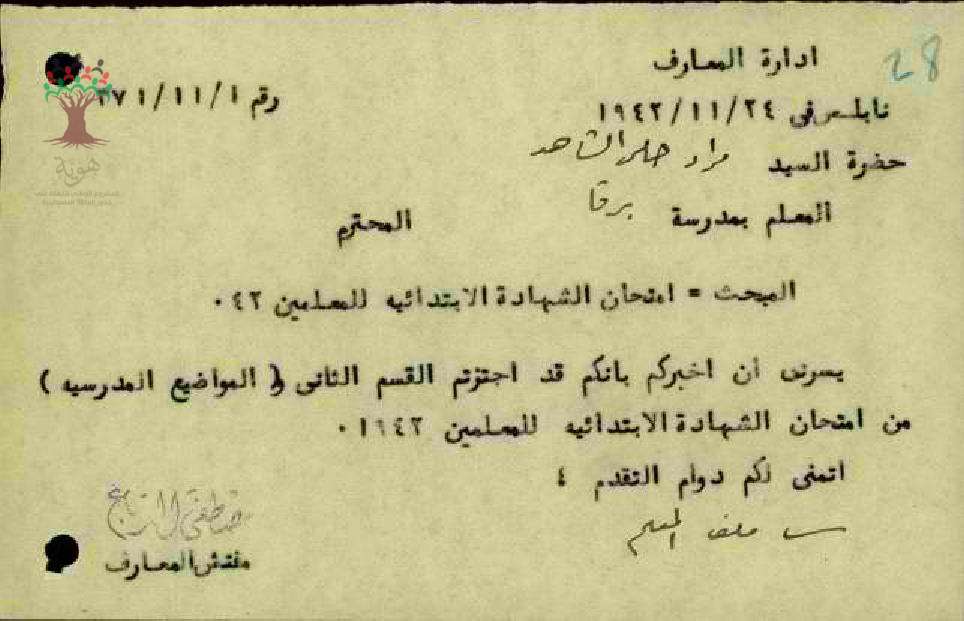 28
ادارة المعارف
نابلس في ١٩٤٢/١١/٢٤
رقم ٣٧١/١١/١
حضرة السيد مراد الشاهد
المعلم بمدرسة برقا المحترم
المبحث = امتحان الشهادة الابتدائيه للمعلمين ٤٢ ٠
يسرني ان اخبركم بانكم قد اجتزتم القسم الثاني ( المواضيع المدرسيه )
من امتحان الشهادة الابتدائيه للمعلمين ١٩٤٢ ٠
اتمنى لكم دوام التقدم ٤
ملف المعلم
مفتش المعارف
هوية